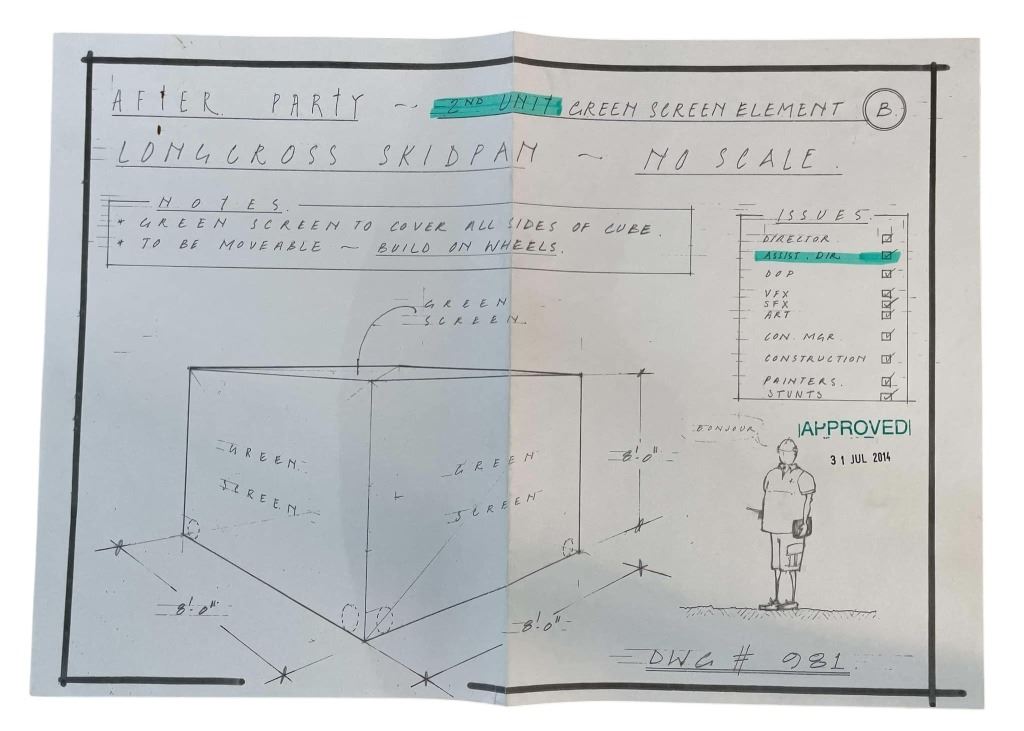 AFTER PARTY ~ 2ND UNIT GREEN SCREEN ELEMENT B.
LONGCROSS SKIDPAN ~ NO SCALE.
NOTES.
* GREEN SCREEN TO COVER ALL SIDES OF CUBE.
* TO BE MOVEABLE ~ BUILD ON WHEELS.
ISSUES.
DIRECTOR
ASSIST. DIR.
DOP
VFX
SFX
ART
CON. MGR.
CONSTRUCTION
PAINTERS.
STUNTS
GREEN
SCREEN.
GREEN
SCREEN
GREEN
SCREEN
8'-0"
8'-0"
8'-0"
BONJOUR
APPROVED
31 JUL 2014
DWG # 981